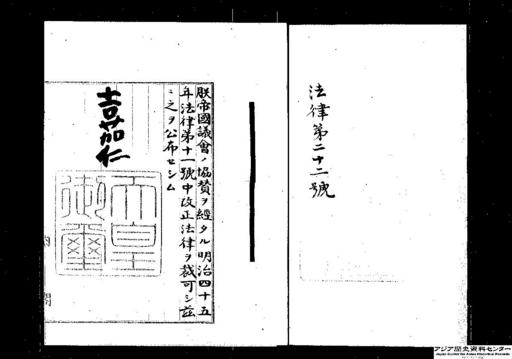 法律第二十二號
朕帝國議會ノ協賛ヲ經タル明治四十五
年法律第十一號中改正法律ヲ裁可シ茲
ニ之ヲ公布セシム
嘉仁
天皇
御璽
アジア歴史資料センター
Japan Center for Asian Historical Records